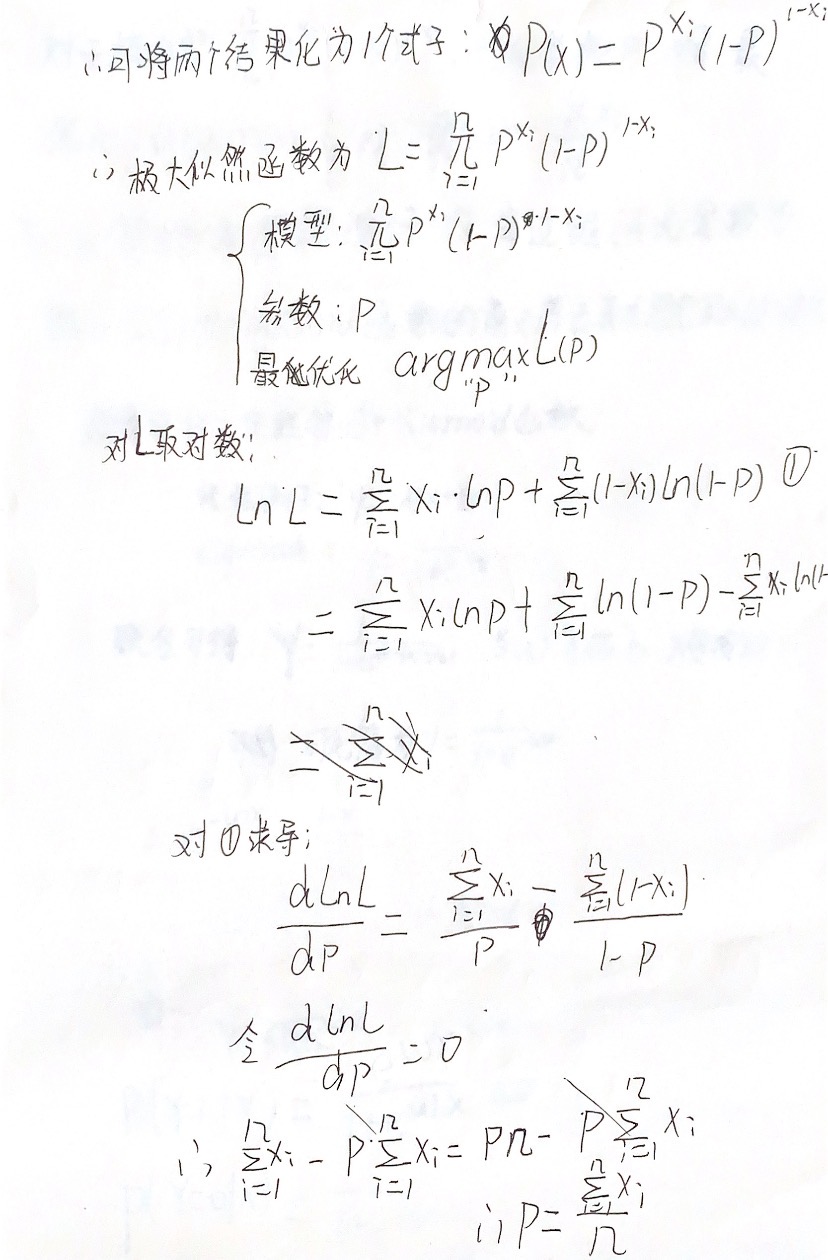 ∴可将两个结果化为1个式子: P(x) = P^{x_i}(1-P)^{1-x_i}
∴ 极大似然函数为 L = ∏_{i=1}^{n} P^{x_i}(1-P)^{1-x_i}
模型: ∏_{i=1}^{n} P^{x_i}(1-P)^{1-x_i}
参数: P
最优化 arg max_{"P"} L(P)
对L取对数:
Ln L = ∑_{i=1}^{n} x_i · lnP + ∑_{i=1}^{n} (1-x_i) ln(1-P) ①
= ∑_{i=1}^{n} x_i lnP + ∑_{i=1}^{n} ln(1-P) - ∑_{i=1}^{n} x_i ln(1-
= ∑_{i=1}^{n} x_i
对①求导:
\frac{d Ln L}{dP} = \frac{∑_{i=1}^{n} x_i}{P} - \frac{∑_{i=1}^{n} (1-x_i)}{1-P}
令 \frac{d Ln L}{dP} = 0
∴ ∑_{i=1}^{n} x_i - P ∑_{i=1}^{n} x_i = Pn - P ∑_{i=1}^{n} x_i
∴ P = \frac{∑_{i=1}^{n} x_i}{n}